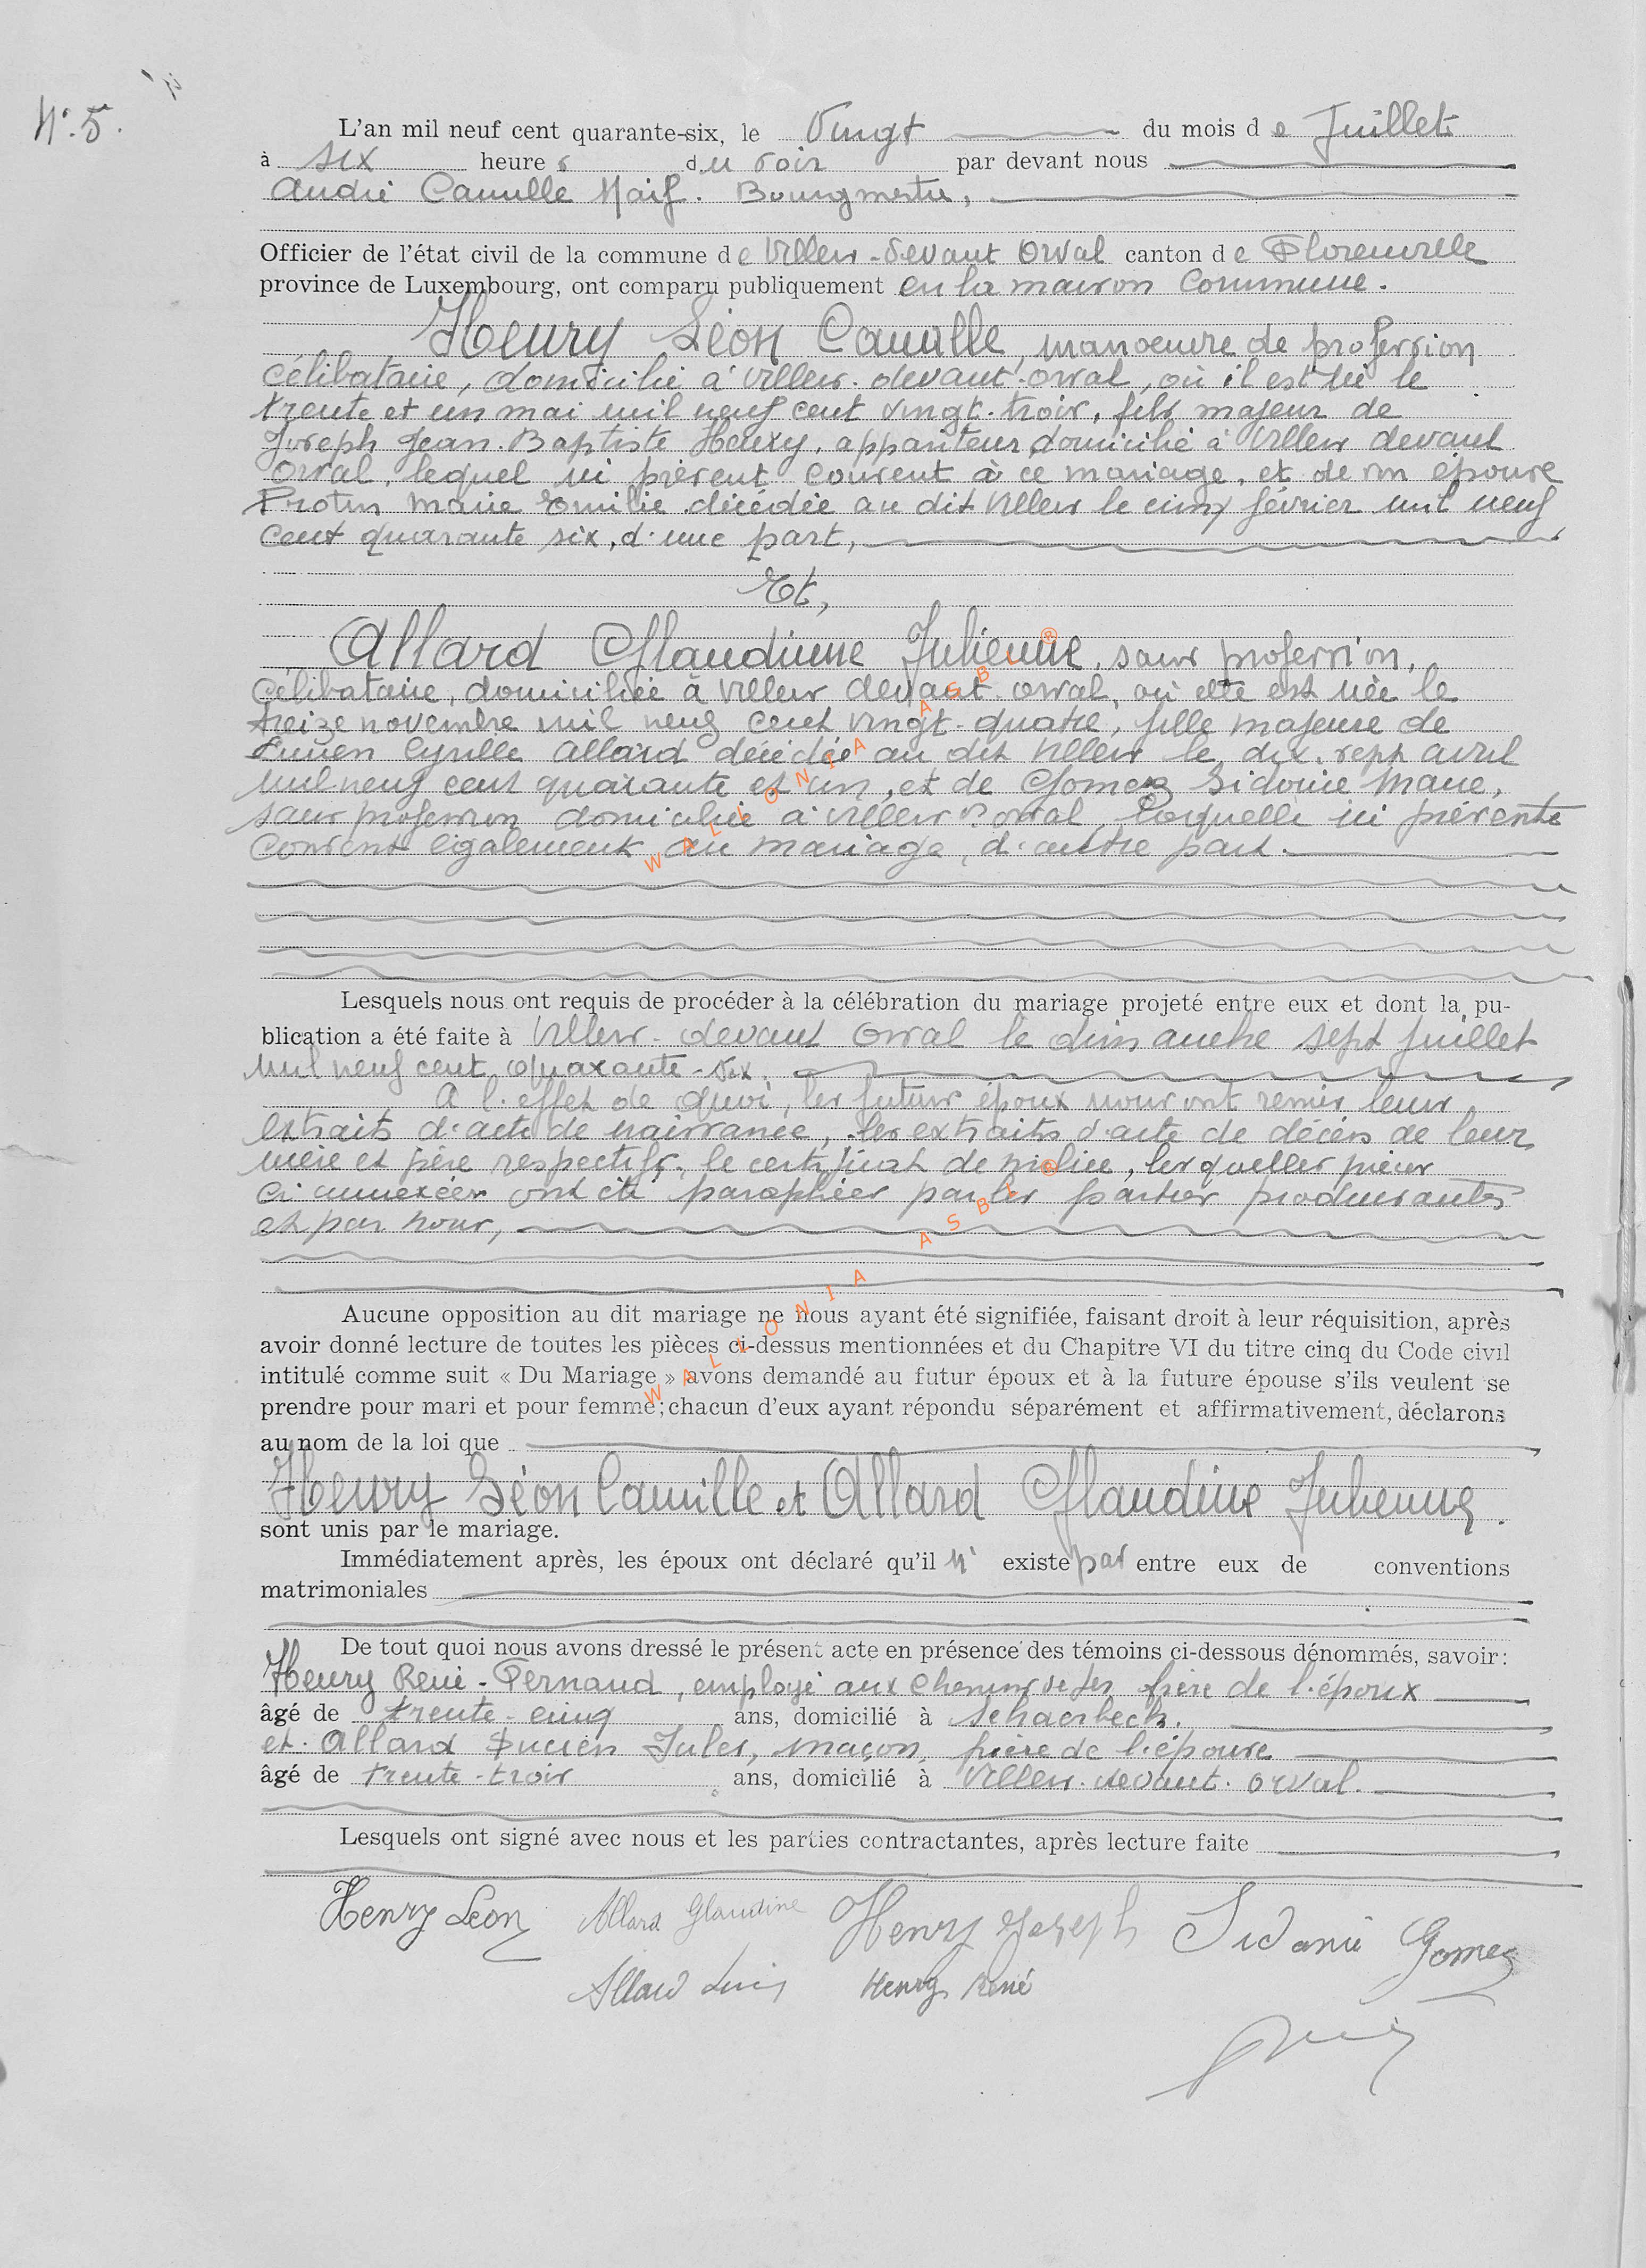 N°. 5.
L'an mil neuf cent quarante-six, le Vingt du mois de Juillet
à six heures du soir par devant nous
André Camille Naif. Bourgmestre,
Officier de l'état civil de la commune de Villers-devant Orval canton de Florenville
province de Luxembourg, ont comparu publiquement en la maison Commune.
Henry Léon Camille, manoeuvre de profession
célibataire, domicilié à Villers-devant-Orval, où il est né le
trente et un mai mil neuf cent vingt-trois, fils majeur de
Joseph Jean-Baptiste Henry, appariteur, domicilié à Villers devant
Orval, lequel ici présent consent à ce mariage, et de son épouse
Frotin Marie Emilie décédée au dit Villers le cinq février mil neuf
cent quarante six, d'une part,
Et,
Allard Glaudinne Julienne, sans profession,
célibataire, domiciliée à Villers devant orval, où elle est née le
treize novembre mil neuf cent vingt-quatre, fille majeure de
Lucien Cyrille Allard décédé au dit Villers le dix-sept avril
mil neuf cent quarante et un, et de Gomez Sidonie Marie,
sans profession domiciliée à Villers Orval, laquelle ici présente
consent également au mariage, d'autre part.
Lesquels nous ont requis de procéder à la célébration du mariage projeté entre eux et dont la pu-
blication a été faite à Villers-devant Orval le dimanche sept juillet
mil neuf cent quarante-six.
A l'effet de quoi, les futurs époux nous ont remis leurs
extraits d'acte de naissance, les extraits d'acte de décès de leur
mère et père respectifs, le certificat de milice, lesquelles pièces
ci annexées ont été paraphées par les parties produisantes
et par nous,
Aucune opposition au dit mariage ne nous ayant été signifiée, faisant droit à leur réquisition, après
avoir donné lecture de toutes les pièces ci-dessus mentionnées et du Chapitre VI du titre cinq du Code civil
intitulé comme suit « Du Mariage » avons demandé au futur époux et à la future épouse s'ils veulent se
prendre pour mari et pour femme; chacun d'eux ayant répondu séparément et affirmativement, déclarons
au nom de la loi que
Henry Léon Camille et Allard Glaudine Julienne.
sont unis par le mariage.
Immédiatement après, les époux ont déclaré qu'il n' existe pas entre eux de conventions
matrimoniales
De tout quoi nous avons dressé le présent acte en présence des témoins ci-dessous dénommés, savoir:
Henry René-Fernand, employé aux chemins de fer frère de l'époux
âgé de trente-cinq ans, domicilié à Schaerbeck.
et. Allard Lucien Jules, maçon, frère de l'épouse
âgé de trente-trois ans, domicilié à Villers-devant-orval.
Lesquels ont signé avec nous et les parties contractantes, après lecture faite
Henry Léon Allard Glaudine Henry Joseph Sidonie Gomez
Allard Henry René
WALLONIA ASBL ®
WALLONIA ASBL ®